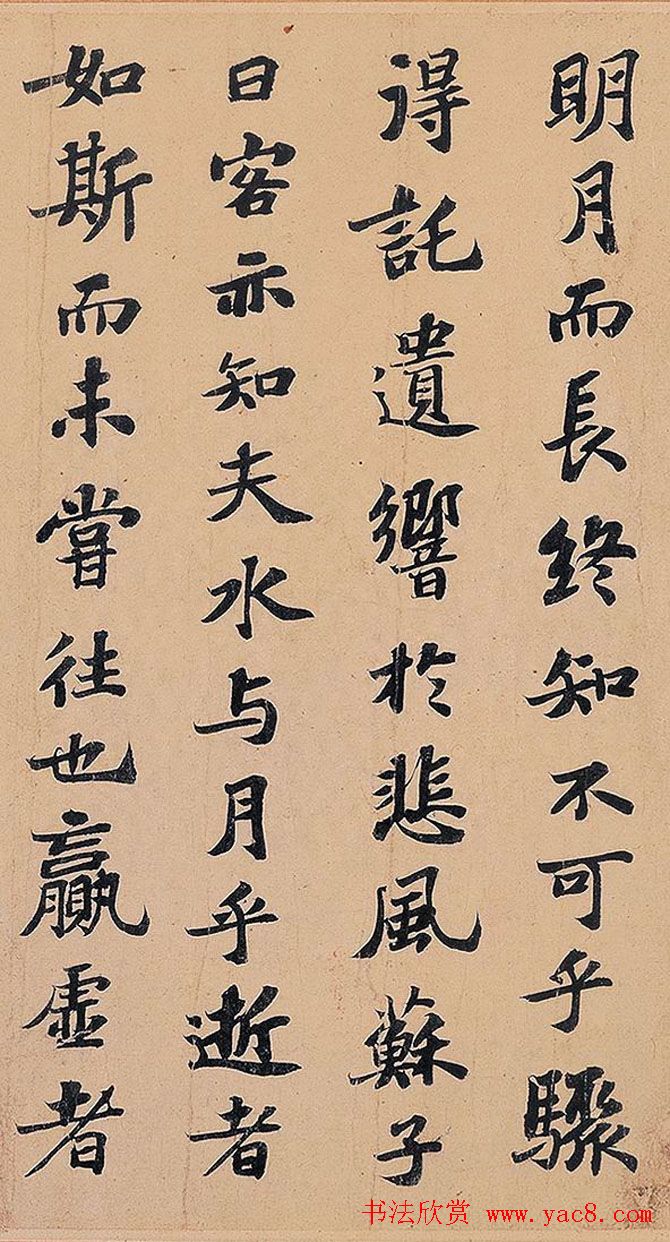 明月而長終知不可乎驟
得託遺響於悲風蘇子
曰客亦知夫水与月乎逝者
如斯而未嘗往也贏虛者
书法欣赏 www.yac8.com